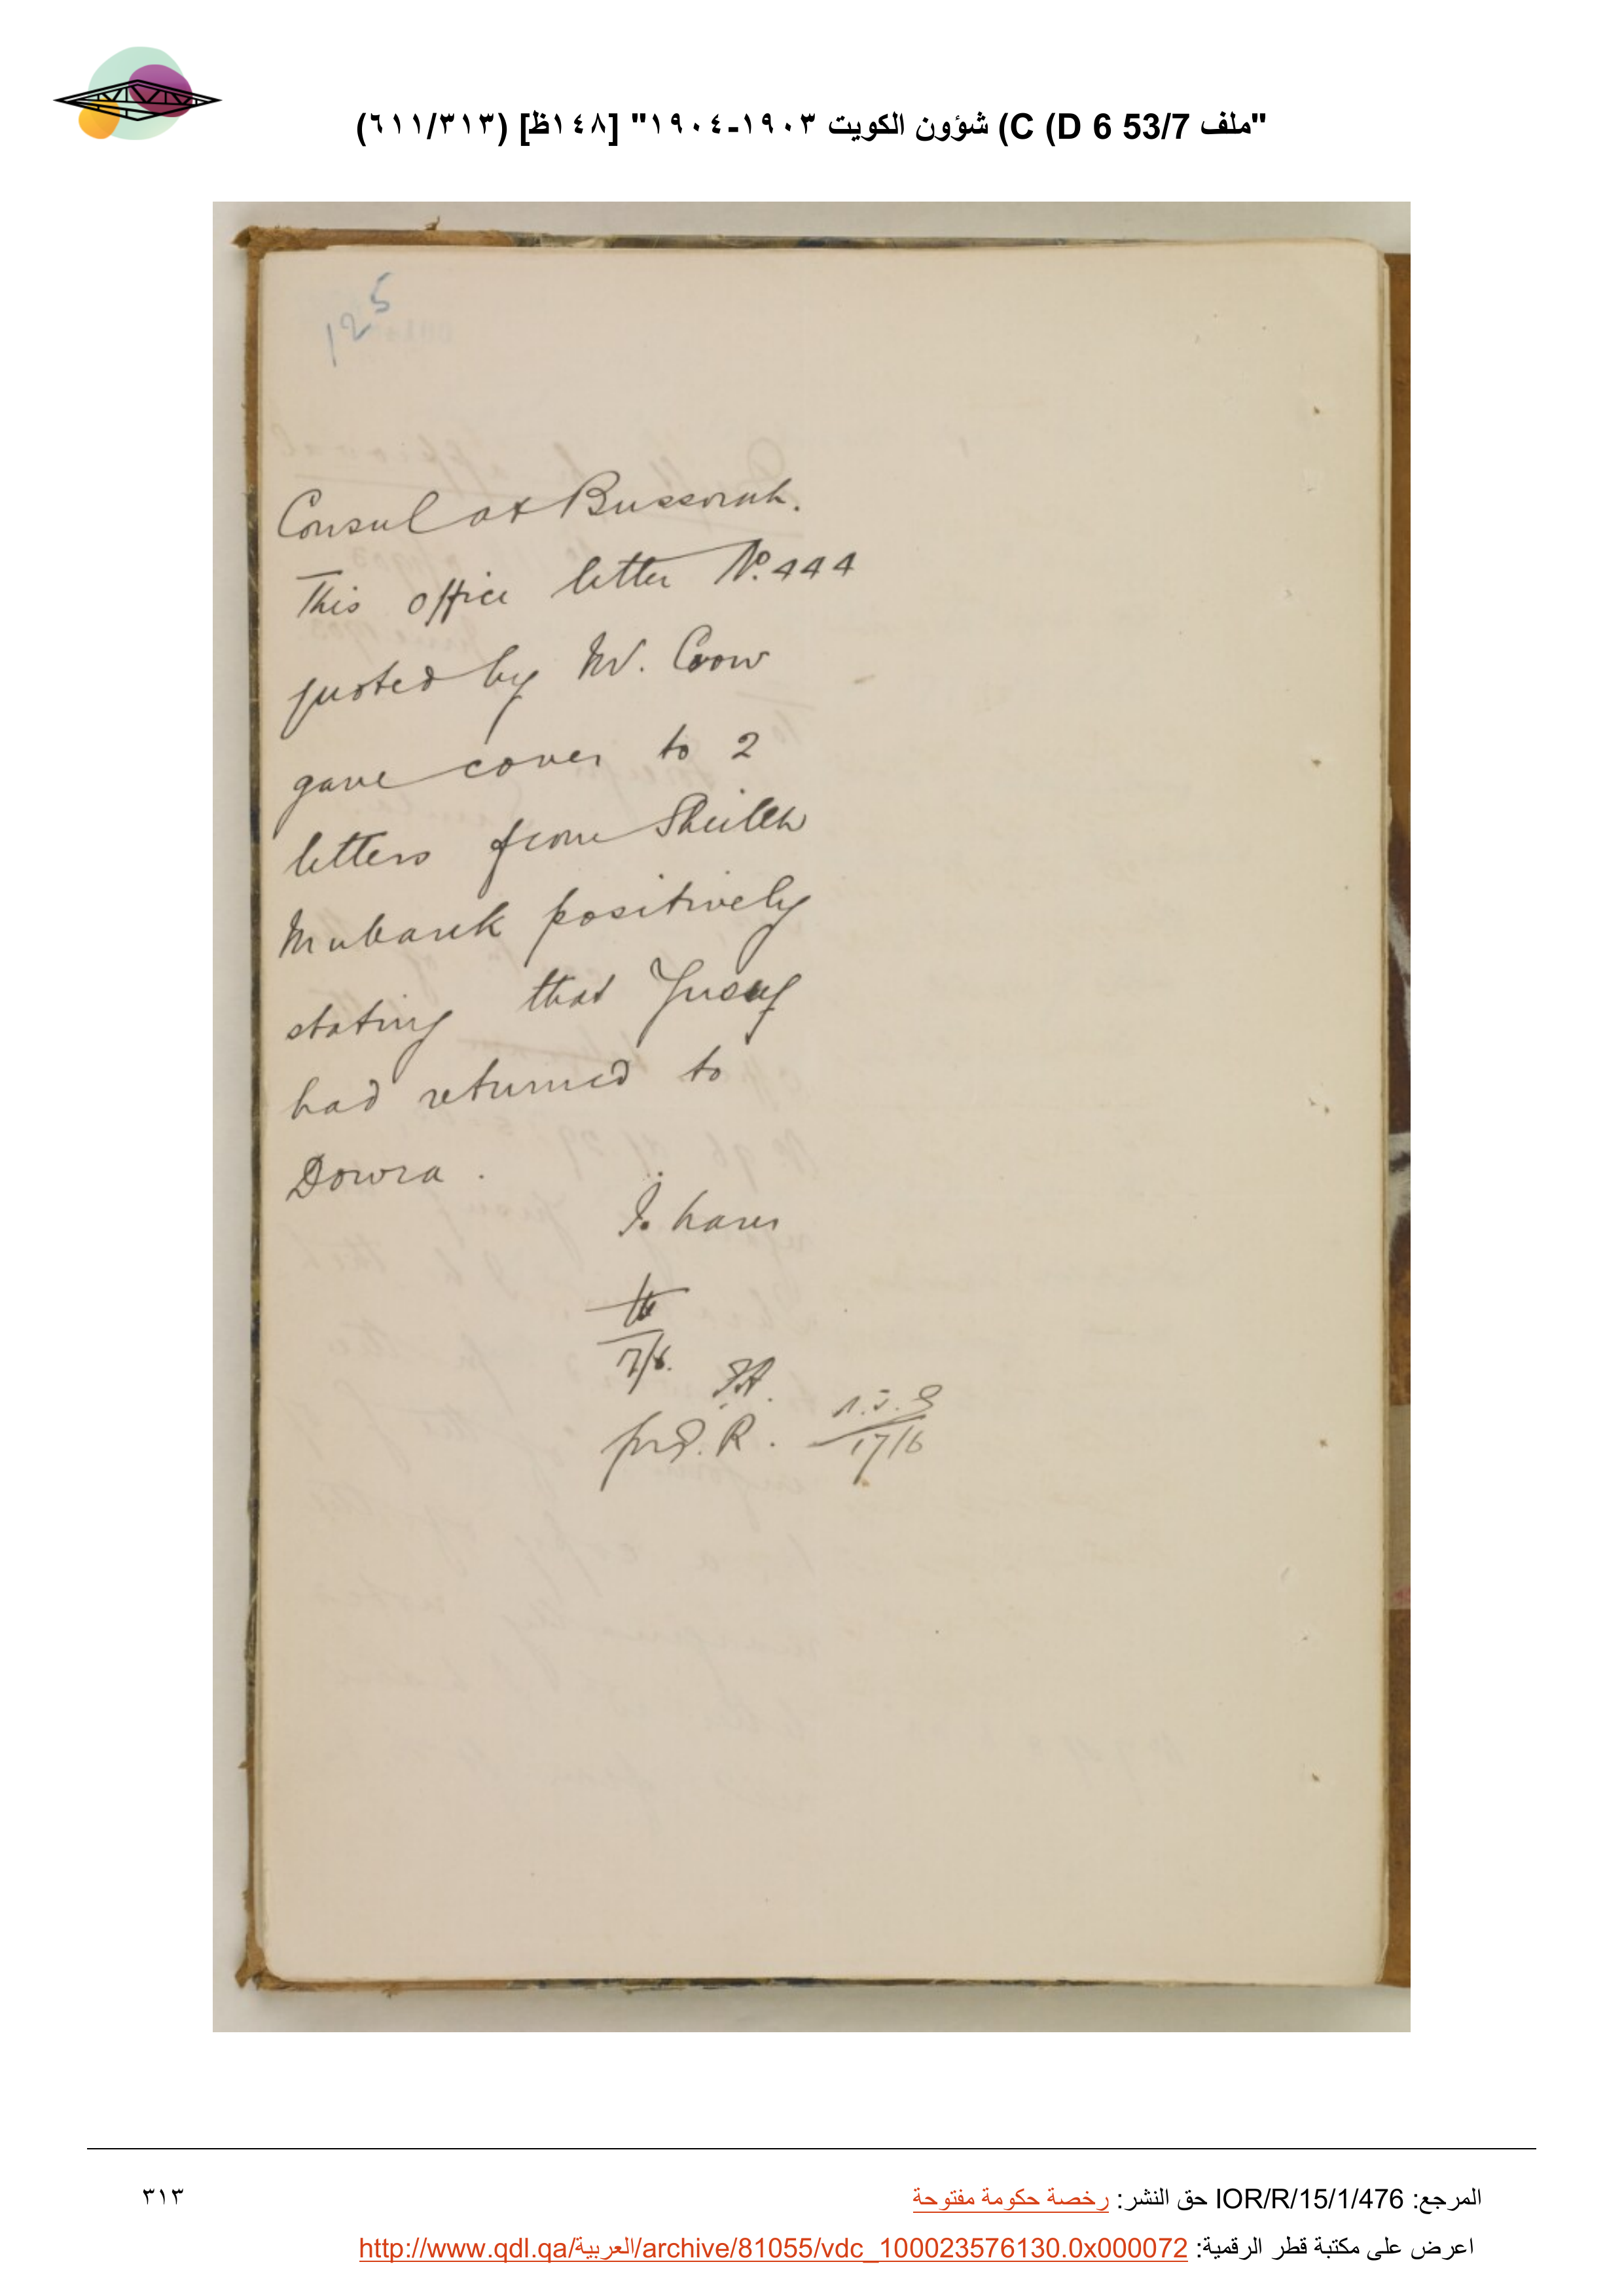 "ملف 53/7 C (D 6) شؤون الكويت ١٩٠٣-١٩٠٤" [١٤٨ظ] (٦١١/٣١٣)
125
Consul at Bussorah.
This office letter No. 444
quoted by Mr. Crow
gave cover to 2
letters from Sheikh
Mubarak positively
stating that Yusuf
had returned to
Dowra.
17/6
المرجع: IOR/R/15/1/476 حق النشر: رخصة حكومة مفتوحة
٣١٣
اعرض على مكتبة قطر الرقمية: http://www.qdl.qa/العربية/archive/81055/vdc_100023576130.0x000072